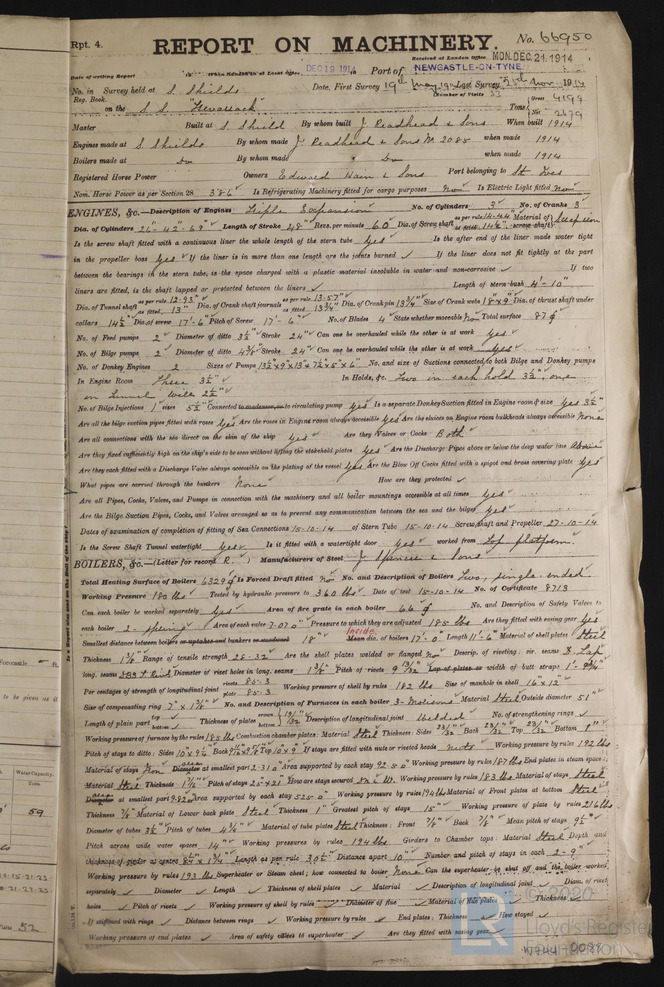 Rpt. 4.
REPORT ON MACHINERY.
No. 66950
Received at London Office MON. DEC. 21. 1914
Date of writing Report DEC 19 1914 Port of NEWCASTLE-ON-TYNE
No. in Survey held at S. Shields Date, First Survey 19th May, 1914 Last Survey Nov 1914
Reg. Book. Number of Visits 33
on the S.S. Tons Gross 4199
Net 2679
Master Built at S. Shields By whom built J. Readhead & Sons When built 1914
Engines made at S. Shields By whom made J. Readhead & Sons No. 2085 when made 1914
Boilers made at Do By whom made Do when made 1914
Registered Horse Power Owners Edward Hain & Sons Port belonging to St Ives
Nom. Horse Power as per Section 28 386 Is Refrigerating Machinery fitted for cargo purposes No Is Electric Light fitted No
ENGINES, &c.—Description of Engines Triple Expansion No. of Cylinders 3 No. of Cranks 3
Dia. of Cylinders 26-42-69" Length of Stroke 48" Revs. per minute 60 Dia. of Screw shaft as per rule as fitted Material of screw shaft
Is the screw shaft fitted with a continuous liner the whole length of the stern tube Yes Is the after end of the liner made water tight
in the propeller boss Yes If the liner is in more than one length are the joints burned ✓ If the liner does not fit tightly at the part
between the bearings in the stern tube, is the space charged with a plastic material insoluble in water and non-corrosive ✓ If two
liners are fitted, is the shaft lapped or protected between the liners ✓ Length of stern bush 4'-10"
Dia. of Tunnel shaft as per rule 12.93" as fitted 13" Dia. of Crank shaft journals as per rule 13.57" as fitted 13¾" Dia. of Crank pin 13¾" Size of Crank webs 18"x9" Dia. of thrust shaft under
collars 14½" Dia. of screw 17'-6" Pitch of Screw 17'-6" No. of Blades 4 State whether moveable No Total surface 87
No. of Feed pumps 2 Diameter of ditto 3½" Stroke 24" Can one be overhauled while the other is at work Yes
No. of Bilge pumps 2 Diameter of ditto 4¾" Stroke 24" Can one be overhauled while the other is at work Yes
No. of Donkey Engines 2 Sizes of Pumps No. and size of Suctions connected to both Bilge and Donkey pumps
In Engine Room Three 3½" In Holds, &c. Two in each hold 3½", one
in tunnel well 2½"
No. of Bilge Injections 1 sizes 5½" Connected to condenser, or to circulating pump Yes Is a separate Donkey Suction fitted in Engine room & size Yes 3½"
Are all the bilge suction pipes fitted with roses Yes Are the roses in Engine room always accessible Yes Are the sluices on Engine room bulkheads always accessible None
Are all connections with the sea direct on the skin of the ship Yes Are they Valves or Cocks Both
Are they fixed sufficiently high on the ship's side to be seen without lifting the stokehold plates Yes Are the Discharge Pipes above or below the deep water line Above
Are they each fitted with a Discharge Valve always accessible on the plating of the vessel Yes Are the Blow Off Cocks fitted with a spigot and brass covering plate Yes
What pipes are carried through the bunkers None How are they protected ✓
Are all Pipes, Cocks, Valves, and Pumps in connection with the machinery and all boiler mountings accessible at all times Yes
Are the Bilge Suction Pipes, Cocks, and Valves arranged so as to prevent any communication between the sea and the bilges Yes
Dates of examination of completion of fitting of Sea Connections 15-10-14 of Stern Tube 15-10-14 Screw shaft and Propeller 27-10-14
Is the Screw Shaft Tunnel watertight Yes Is it fitted with a watertight door Yes worked from Top platform.
BOILERS, &c.—(Letter for record R.) Manufacturers of Steel J. Spencer & Sons
Total Heating Surface of Boilers 6329 Is Forced Draft fitted No No. and Description of Boilers Two, single-ended
Working Pressure 180 lbs Tested by hydraulic pressure to 360 lbs Date of test 15-10-14 No. of Certificate 8713
Can each boiler be worked separately Yes Area of fire grate in each boiler 66 No. and Description of Safety Valves to
each boiler 2 - spring Area of each valve 7.07 Pressure to which they are adjusted 185 lbs Are they fitted with easing gear Yes
Smallest distance between boilers or uptakes and bunkers or woodwork 18" Inside dia. of boilers 17'-0" Length 11'-6" Material of shell plates Steel
Thickness Range of tensile strength 28-32 Are the shell plates welded or flanged No Descrip. of riveting: cir. seams D. Lap
long. seams Diameter of rivet holes in long. seams 1⅜" Pitch of rivets Lap of plates or width of butt straps
Per centages of strength of longitudinal joint rivets 85.3 plate 85.3 Working pressure of shell by rules 182 lbs Size of manhole in shell 16"x12"
Size of compensating ring No. and Description of Furnaces in each boiler 3 - Material Steel Outside diameter 51"
Length of plain part top bottom Thickness of plates crown bottom Description of longitudinal joint Welded No. of strengthening rings ✓
Working pressure of furnace by the rules 185 lbs Combustion chamber plates: Material Steel Thickness: Sides Back Top Bottom 1"
Pitch of stays to ditto: Sides Back Top If stays are fitted with nuts or riveted heads Nuts Working pressure by rules 192 lbs
Material of stays Iron area at smallest part 2.310 Area supported by each stay 92.50 Working pressure by rules 187 lbs End plates in steam space:
Material Steel Thickness Pitch of stays 25"x21" How are stays secured Working pressure by rules 183 lbs Material of stays Steel
area at smallest part Area supported by each stay 525 Working pressure by rules 194 lbs Material of Front plates at bottom Steel
Thickness ⅞" Material of Lower back plate Steel Thickness 1" Greatest pitch of stays 15" Working pressure of plate by rules 216 lbs
Diameter of tubes 3½" Pitch of tubes 4¾" Material of tube plates Steel Thickness: Front ⅞" Back ⅞" Mean pitch of stays 9½"
Pitch across wide water spaces 14" Working pressures by rules 194 lbs Girders to Chamber tops: Material Steel Depth and
thickness of girder at centre Length as per rule 30½" Distance apart 10" Number and pitch of stays in each 2 - 9"
Working pressure by rules 193 lbs Superheater or Steam chest; how connected to boiler None Can the superheater be shut off and the boiler worked
separately ✓ Diameter ✓ Length ✓ Thickness of shell plates ✓ Material ✓ Description of longitudinal joint ✓ Diam. of rivet
holes ✓ Pitch of rivets ✓ Working pressure of shell by rules ✓ Diameter of flue ✓ Material of flue plates ✓ Thickness ✓
If stiffened with rings ✓ Distance between rings ✓ Working pressure by rules ✓ End plates: Thickness ✓ How stayed ✓
Working pressure of end plates ✓ Area of safety valves to superheater ✓ Are they fitted with easing gear ✓
© 2020
Lloyd's Register
Foundation